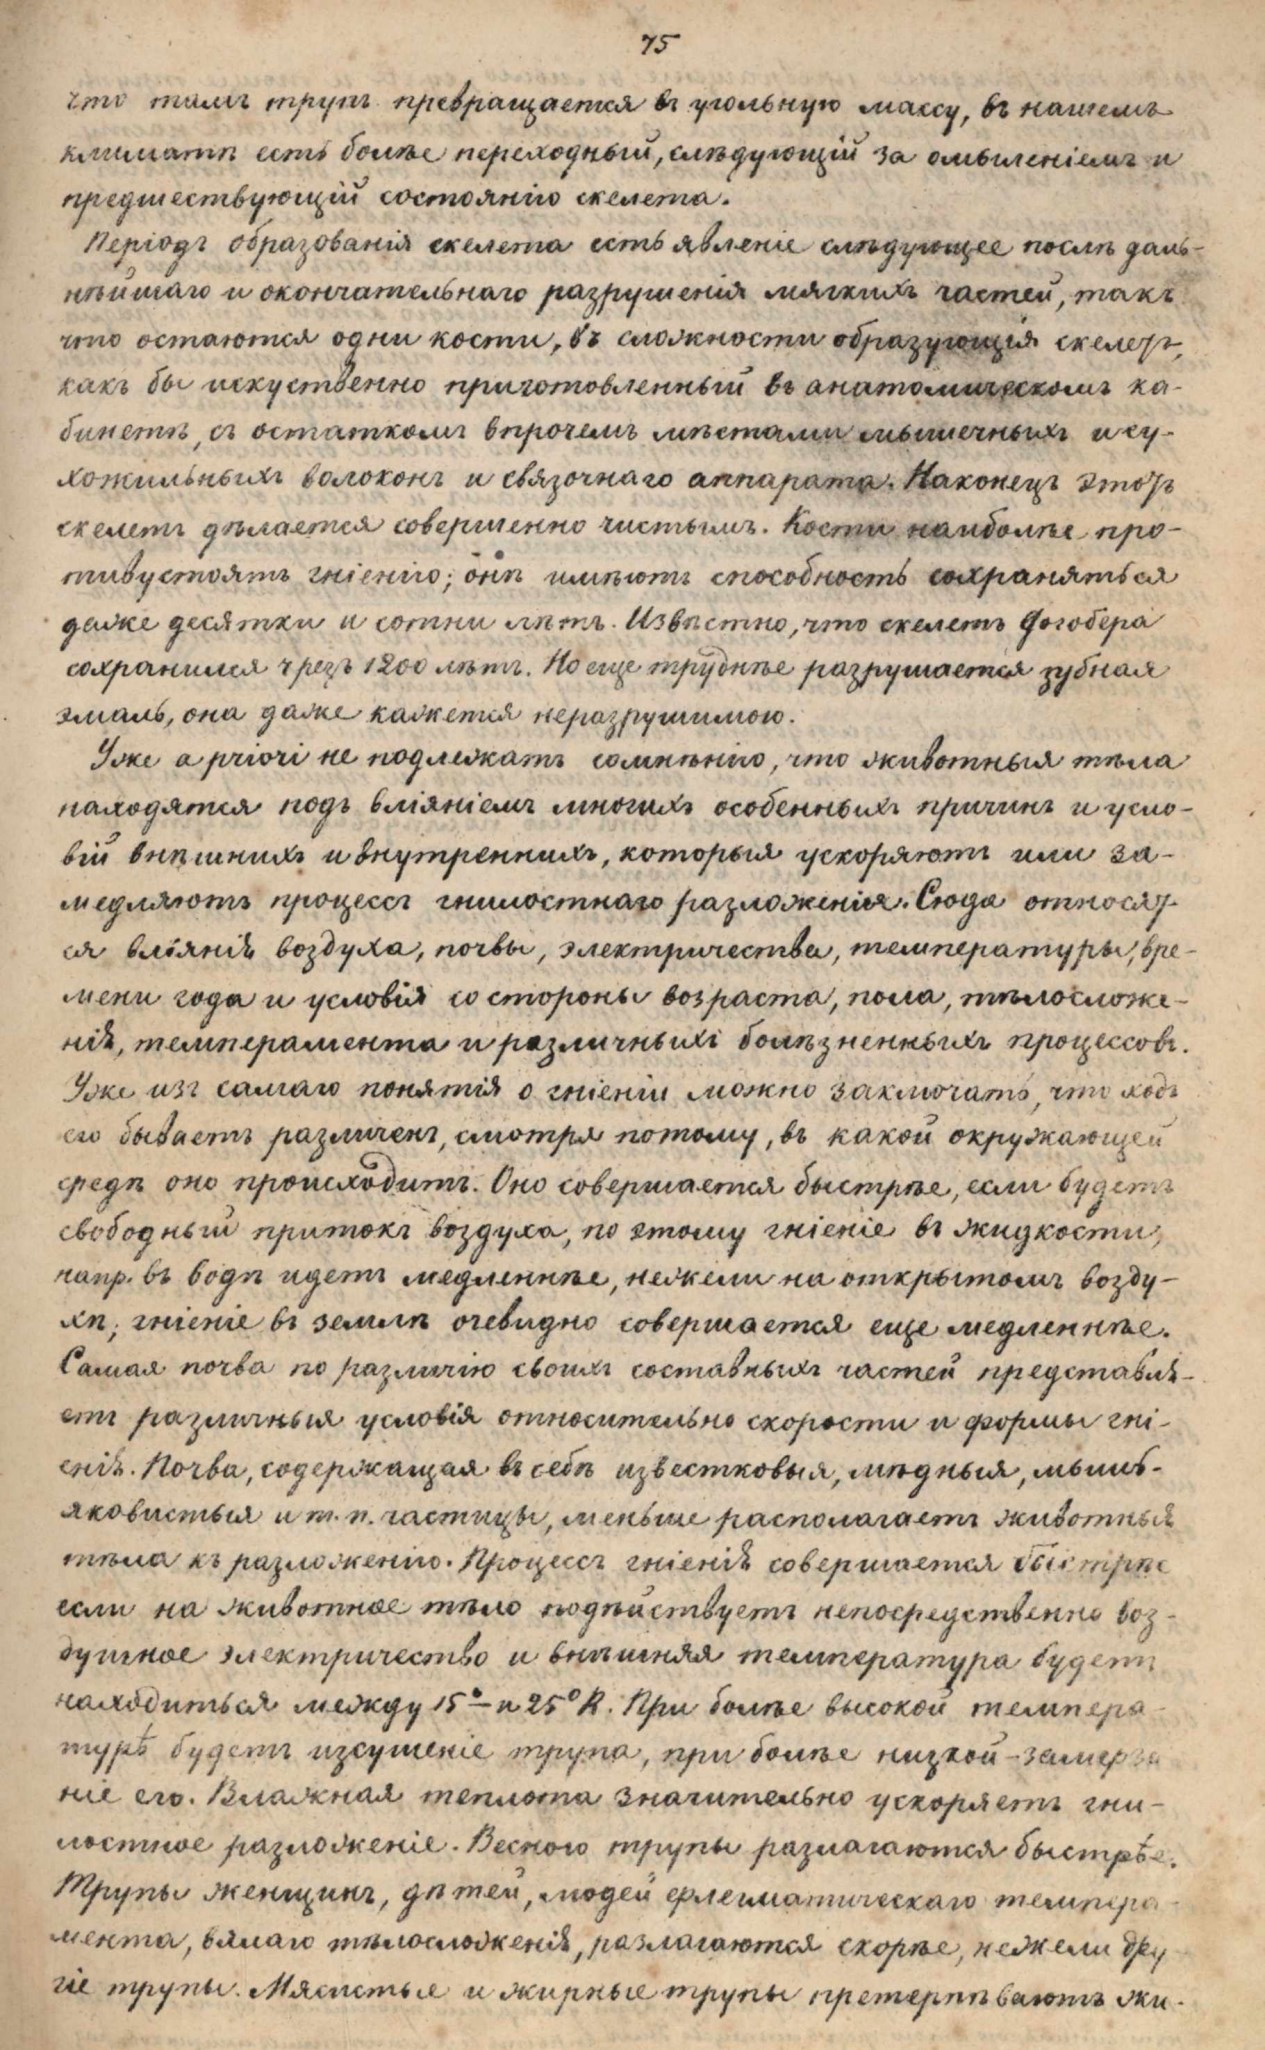 75
что тамъ трупъ превращается въ угольную массу, въ нашемъ
климатѣ есть болѣе переходный, слѣдующій за омыленіемъ и
предшествующій состоянію скелета.
Періодъ образованія скелета есть явленіе слѣдующее послѣ даль-
нѣйшаго и окончательнаго разрушенія мягкихъ частей, такъ
что остаются одни кости, въ сложности образующія скелетъ,
какъ бы искуственно приготовленный въ анатомическомъ ка-
бинетѣ, съ остаткомъ впрочемъ мѣстами мышечныхъ и су-
хожильныхъ волоконъ и связочнаго аппарата. Наконецъ этотъ
скелетъ дѣлается совершенно чистымъ. Кости наиболѣе про-
тивустоятъ гніенію; онѣ имѣютъ способность сохраняться
даже десятки и сотни лѣтъ. Извѣстно, что скелетъ Догобера
сохранился чрезъ 1200 лѣтъ. Но еще труднѣе разрушается зубная
эмаль, она даже кажется неразрушимою.
Уже a priori не подлежатъ сомнѣнію, что животныя тѣла
находятся подъ вліяніемъ многихъ особенныхъ причинъ и усло-
вій внѣшнихъ и внутреннихъ, которыя ускоряютъ или за-
медляютъ процессъ гнилостнаго разложенія. Сюда относят-
ся вліянія воздуха, почвы, электричества, температуры, вре-
мени года и условія со стороны возраста, пола, тѣлосложе-
нія, темперамента и различныхъ болѣзненныхъ процессовъ.
Уже изъ самаго понятія о гніеніи можно заключать, что ходъ
его бываетъ различенъ, смотря потому, въ какой окружающей
средѣ оно происходитъ. Оно совершается быстрѣе, если будетъ
свободный притокъ воздуха, по этому гніеніе въ жидкости,
напр. въ водѣ идетъ медленнѣе, нежели на открытомъ возду-
хѣ; гніеніе въ землѣ очевидно совершается еще медленнѣе.
Самая почва по различію своихъ составныхъ частей представля-
етъ различныя условія относительно скорости и формы гні-
енія. Почва, содержащая въ себѣ известковыя, мѣдныя, мышь-
яковистыя и т. п. частицы, меньше располагаетъ животныя
тѣла къ разложенію. Процессъ гніенія совершается быстрѣе
если на животное тѣло подѣйствуетъ непосредственно воз-
душное электричество и внѣшняя температура будетъ
находиться между 15° и 25° R. При болѣе высокой темпера-
турѣ будетъ изсушеніе трупа, при болѣе низкой - замерза
ніе его. Влажная теплота значительно ускоряетъ гни-
лостное разложеніе. Весною трупы разлагаются быстрѣе.
Трупы женщинъ, дѣтей, людей флегматическаго темпера-
мента, вялаго тѣлосложенія, разлагаются скорѣе, нежели дру-
гіе трупы. Мясистые и жирные трупы претерпѣваютъ жи-